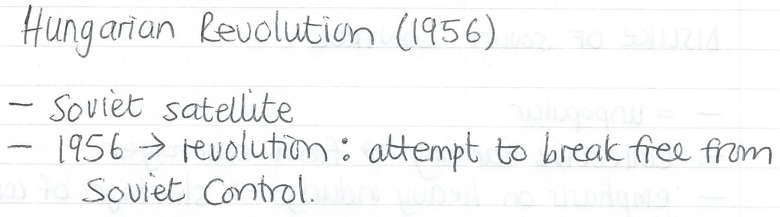 Hungarian Revolution (1956)
- Soviet satellite
- 1956 → revolution: attempt to break free from
Soviet Control.